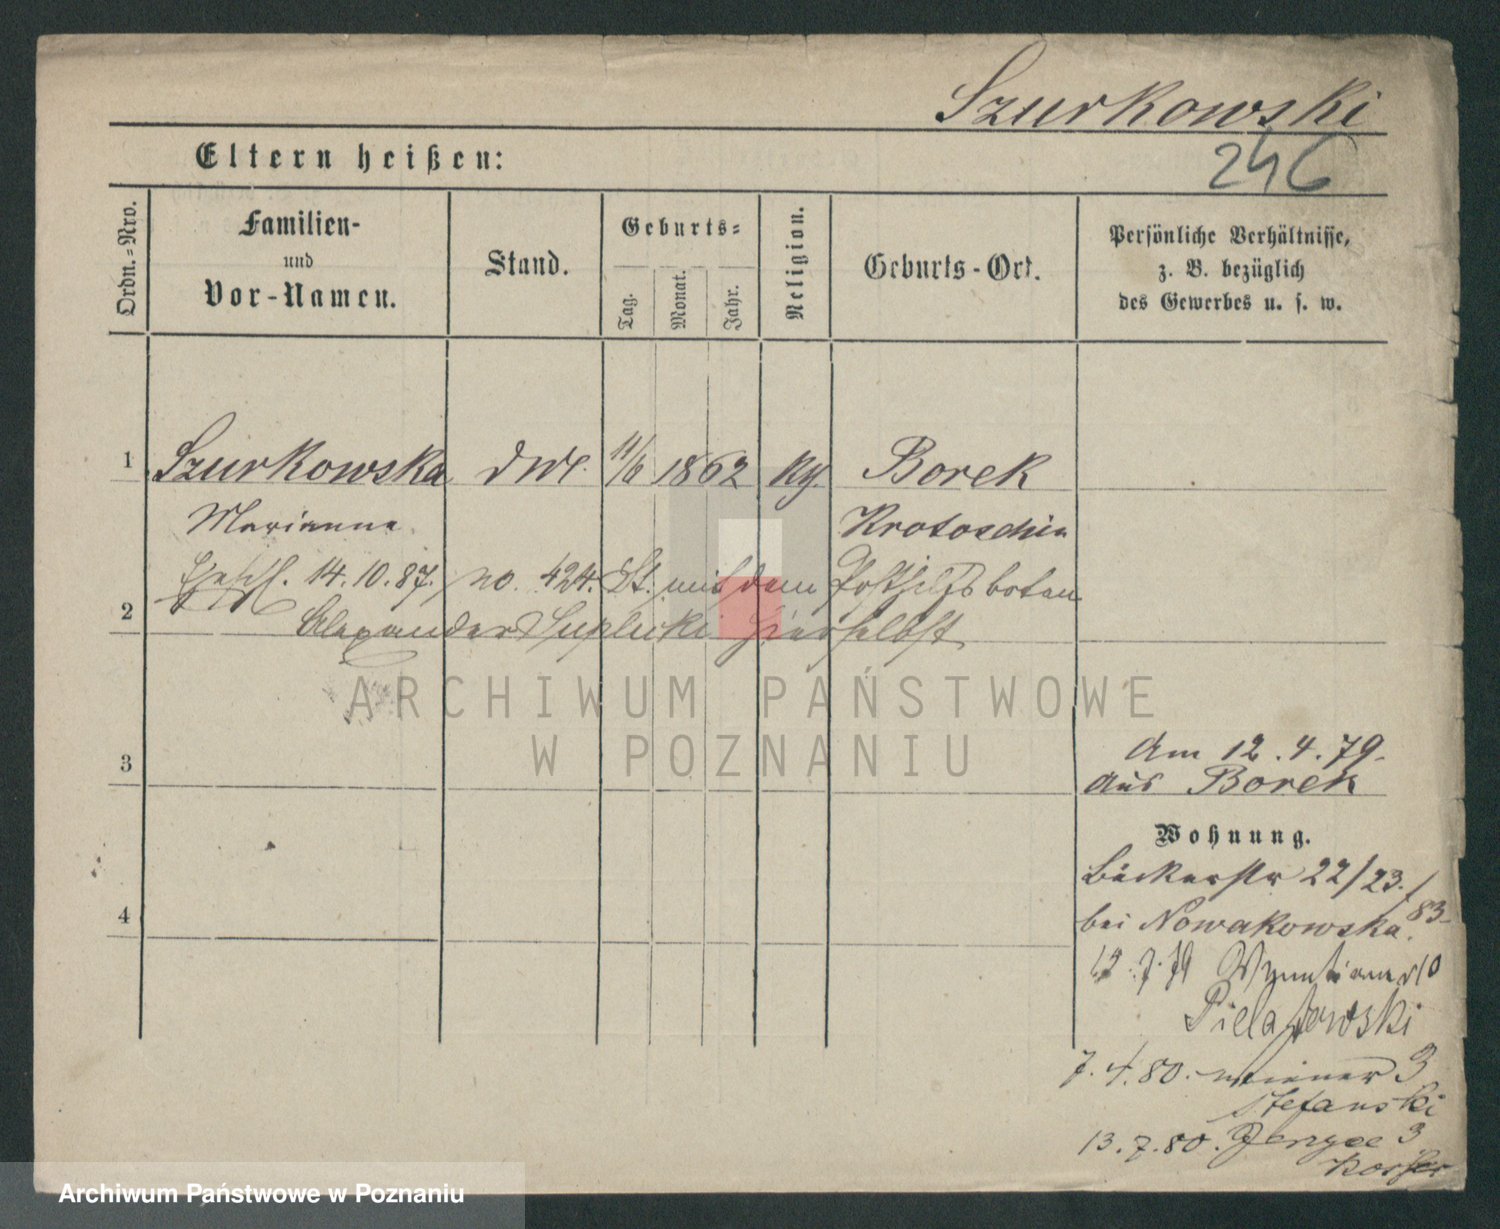 Szurkowski
246
Eltern heißen:
Ordn.-Nro.
Familien-
und
Vor-Namen.
Stand.
Geburts-
Tag.
Monat.
Jahr.
Religion.
Geburts-Ort.
Persönliche Verhältnisse,
z. B. bezüglich
des Gewerbes u. s. w.
1 Szurkowska 11/6 1862 Borek
Marianne Krotoschin
14.10.87. no. 424. St. mit dem
2 Alexander hierselbst
ARCHIWUM PAŃSTWOWE
W POZNANIU
Am 12.4.79.
3 aus Borek
Wohnung.
Bäckerstr 22/23./
83
4 bei Nowakowska.
12.7.79 10
7.4.80. 3
Stefanski
13.7.80. 3
Archiwum Państwowe w Poznaniu